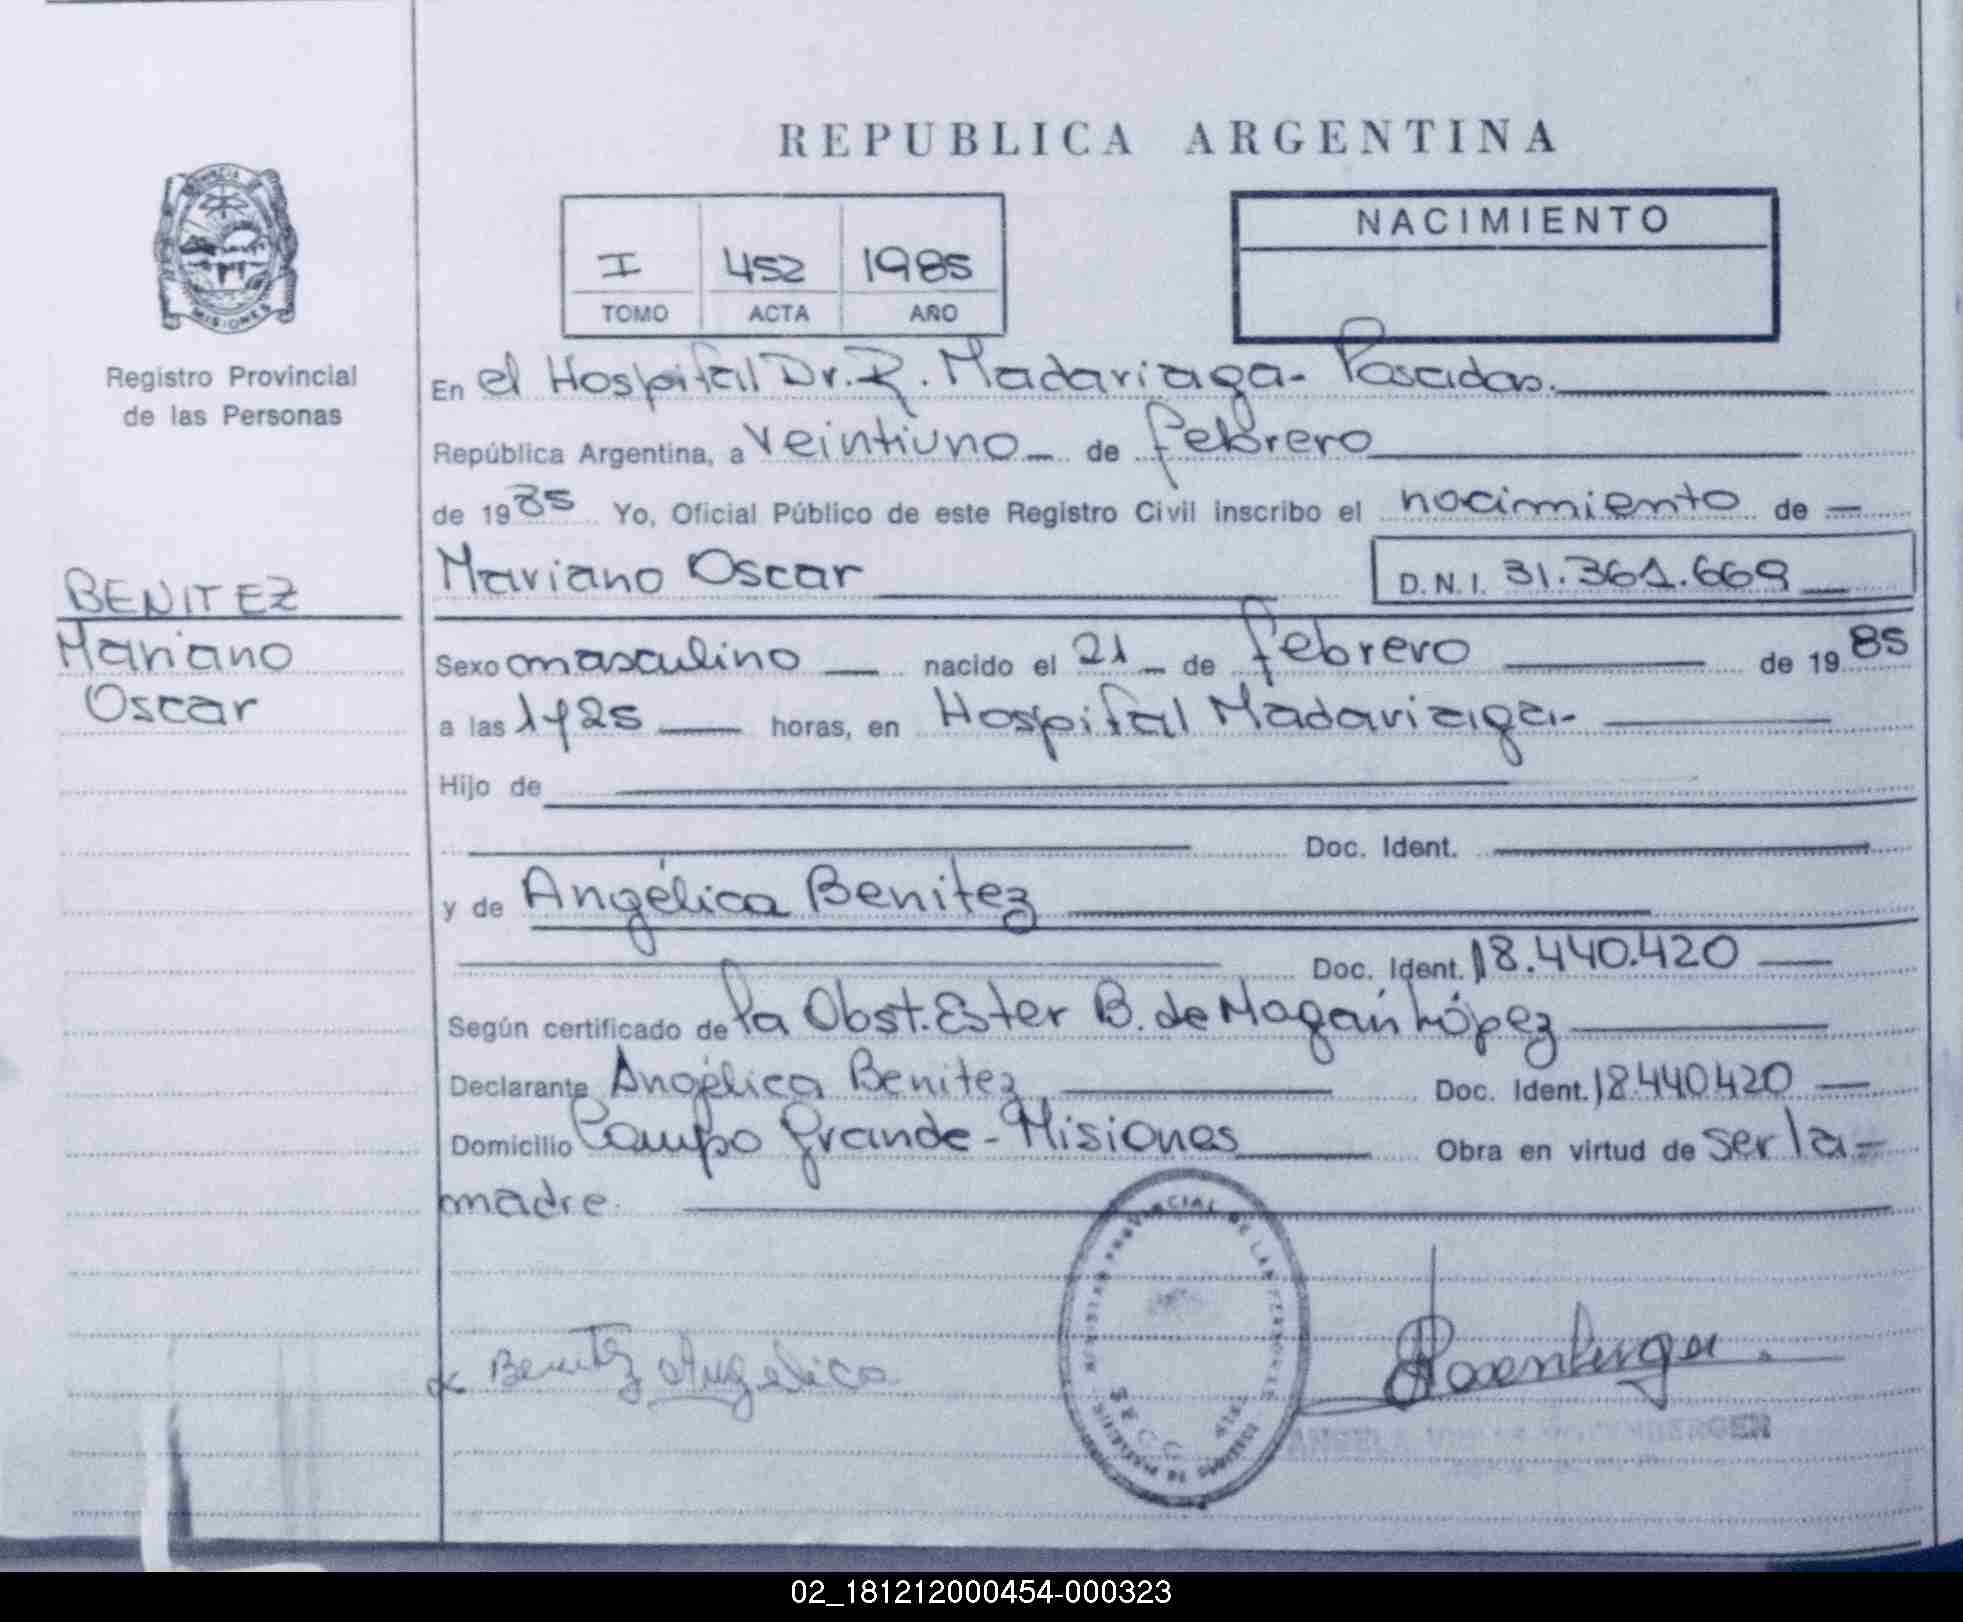 REPUBLICA ARGENTINA
PROVINCIA DE
MISIONES
Registro Provincial
de las Personas
I 452 1985
TOMO ACTA AÑO
NACIMIENTO
En el Hospital Dr. R. Madariaga - Posadas.
República Argentina, a veintiuno de febrero
de 1985 Yo, Oficial Público de este Registro Civil inscribo el nacimiento de
Mariano Oscar D.N.I. 31.361.669
BENITEZ
Mariano
Oscar
Sexo masculino nacido el 21 de febrero de 1985
a las 1725 horas, en Hospital Madariaga.-
Hijo de
Doc. Ident.
y de Angélica Benitez
Doc. Ident. 18.440.420
Según certificado de la Obst. Ester B. de Magán López
Declarante Angélica Benitez Doc. Ident. 18.440.420
Domicilio Campo Grande - Misiones Obra en virtud de ser la
madre.
PROVINCIAL DE LAS PERSONAS
SECC
Benitez Angelica
Rosenberger
ANGELA ROSENBERGER
02_181212000454-000323